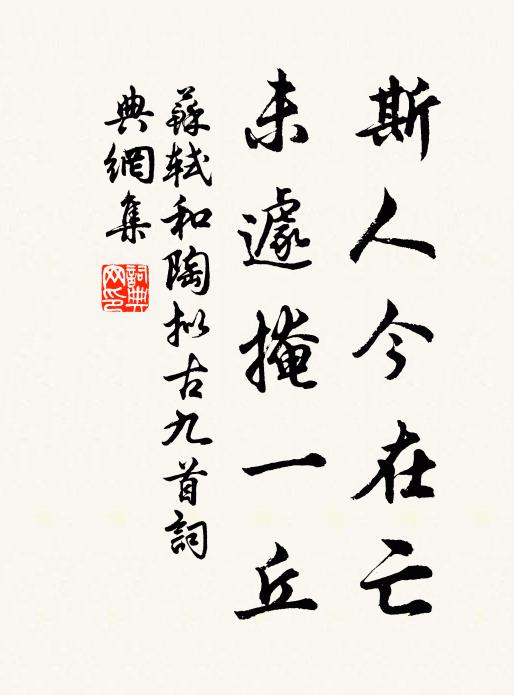 斯人今在亡
未遽掩一丘
蘇軾和陶拟古九首詞
典網集
詞典网印